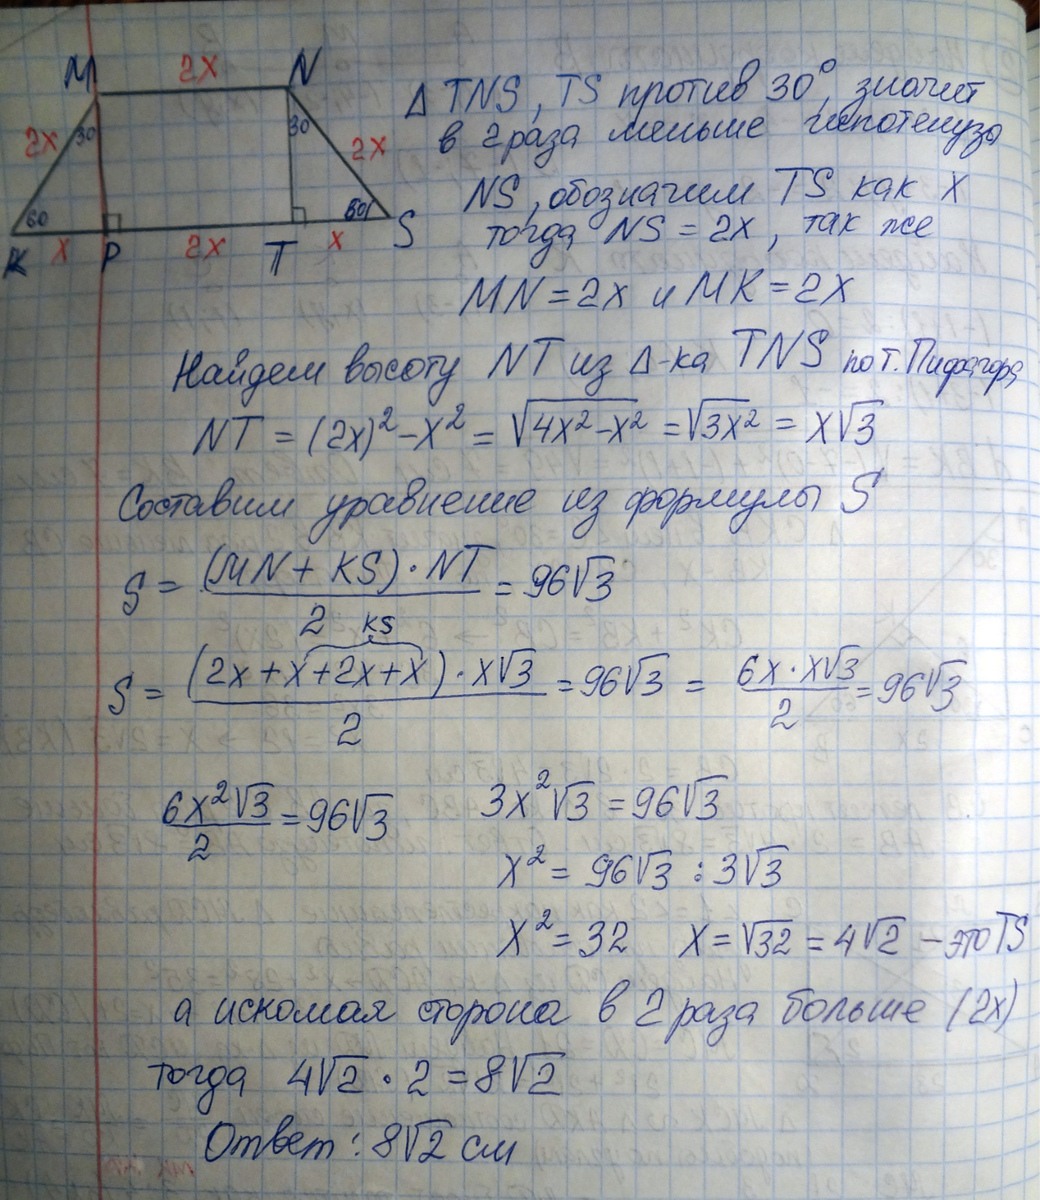 M 2x N
2x 30 30 2x
60 60
K x P 2x T x S
Δ TNS, TS против 30°, значит
в 2 раза меньше гипотенуза
NS, обозначим TS как X
тогда NS = 2x, так же
MN = 2x и MK = 2x
Найдем высоту NT из Δ-ка TNS по т. Пифагора
NT = (2x)² - x² = √4x²-x² = √3x² = x√3
Составим уравнение из формулы S
S = (MN + KS) · NT / 2 = 96√3
KS
S = (2x + x + 2x + x) · x√3 / 2 = 96√3 = 6x · x√3 / 2 = 96√3
6x²√3 / 2 = 96√3 3x²√3 = 96√3
x² = 96√3 : 3√3
x² = 32 x = √32 = 4√2 - это TS
а искомая сторона в 2 раза больше (2x)
тогда 4√2 · 2 = 8√2
Ответ: 8√2 см